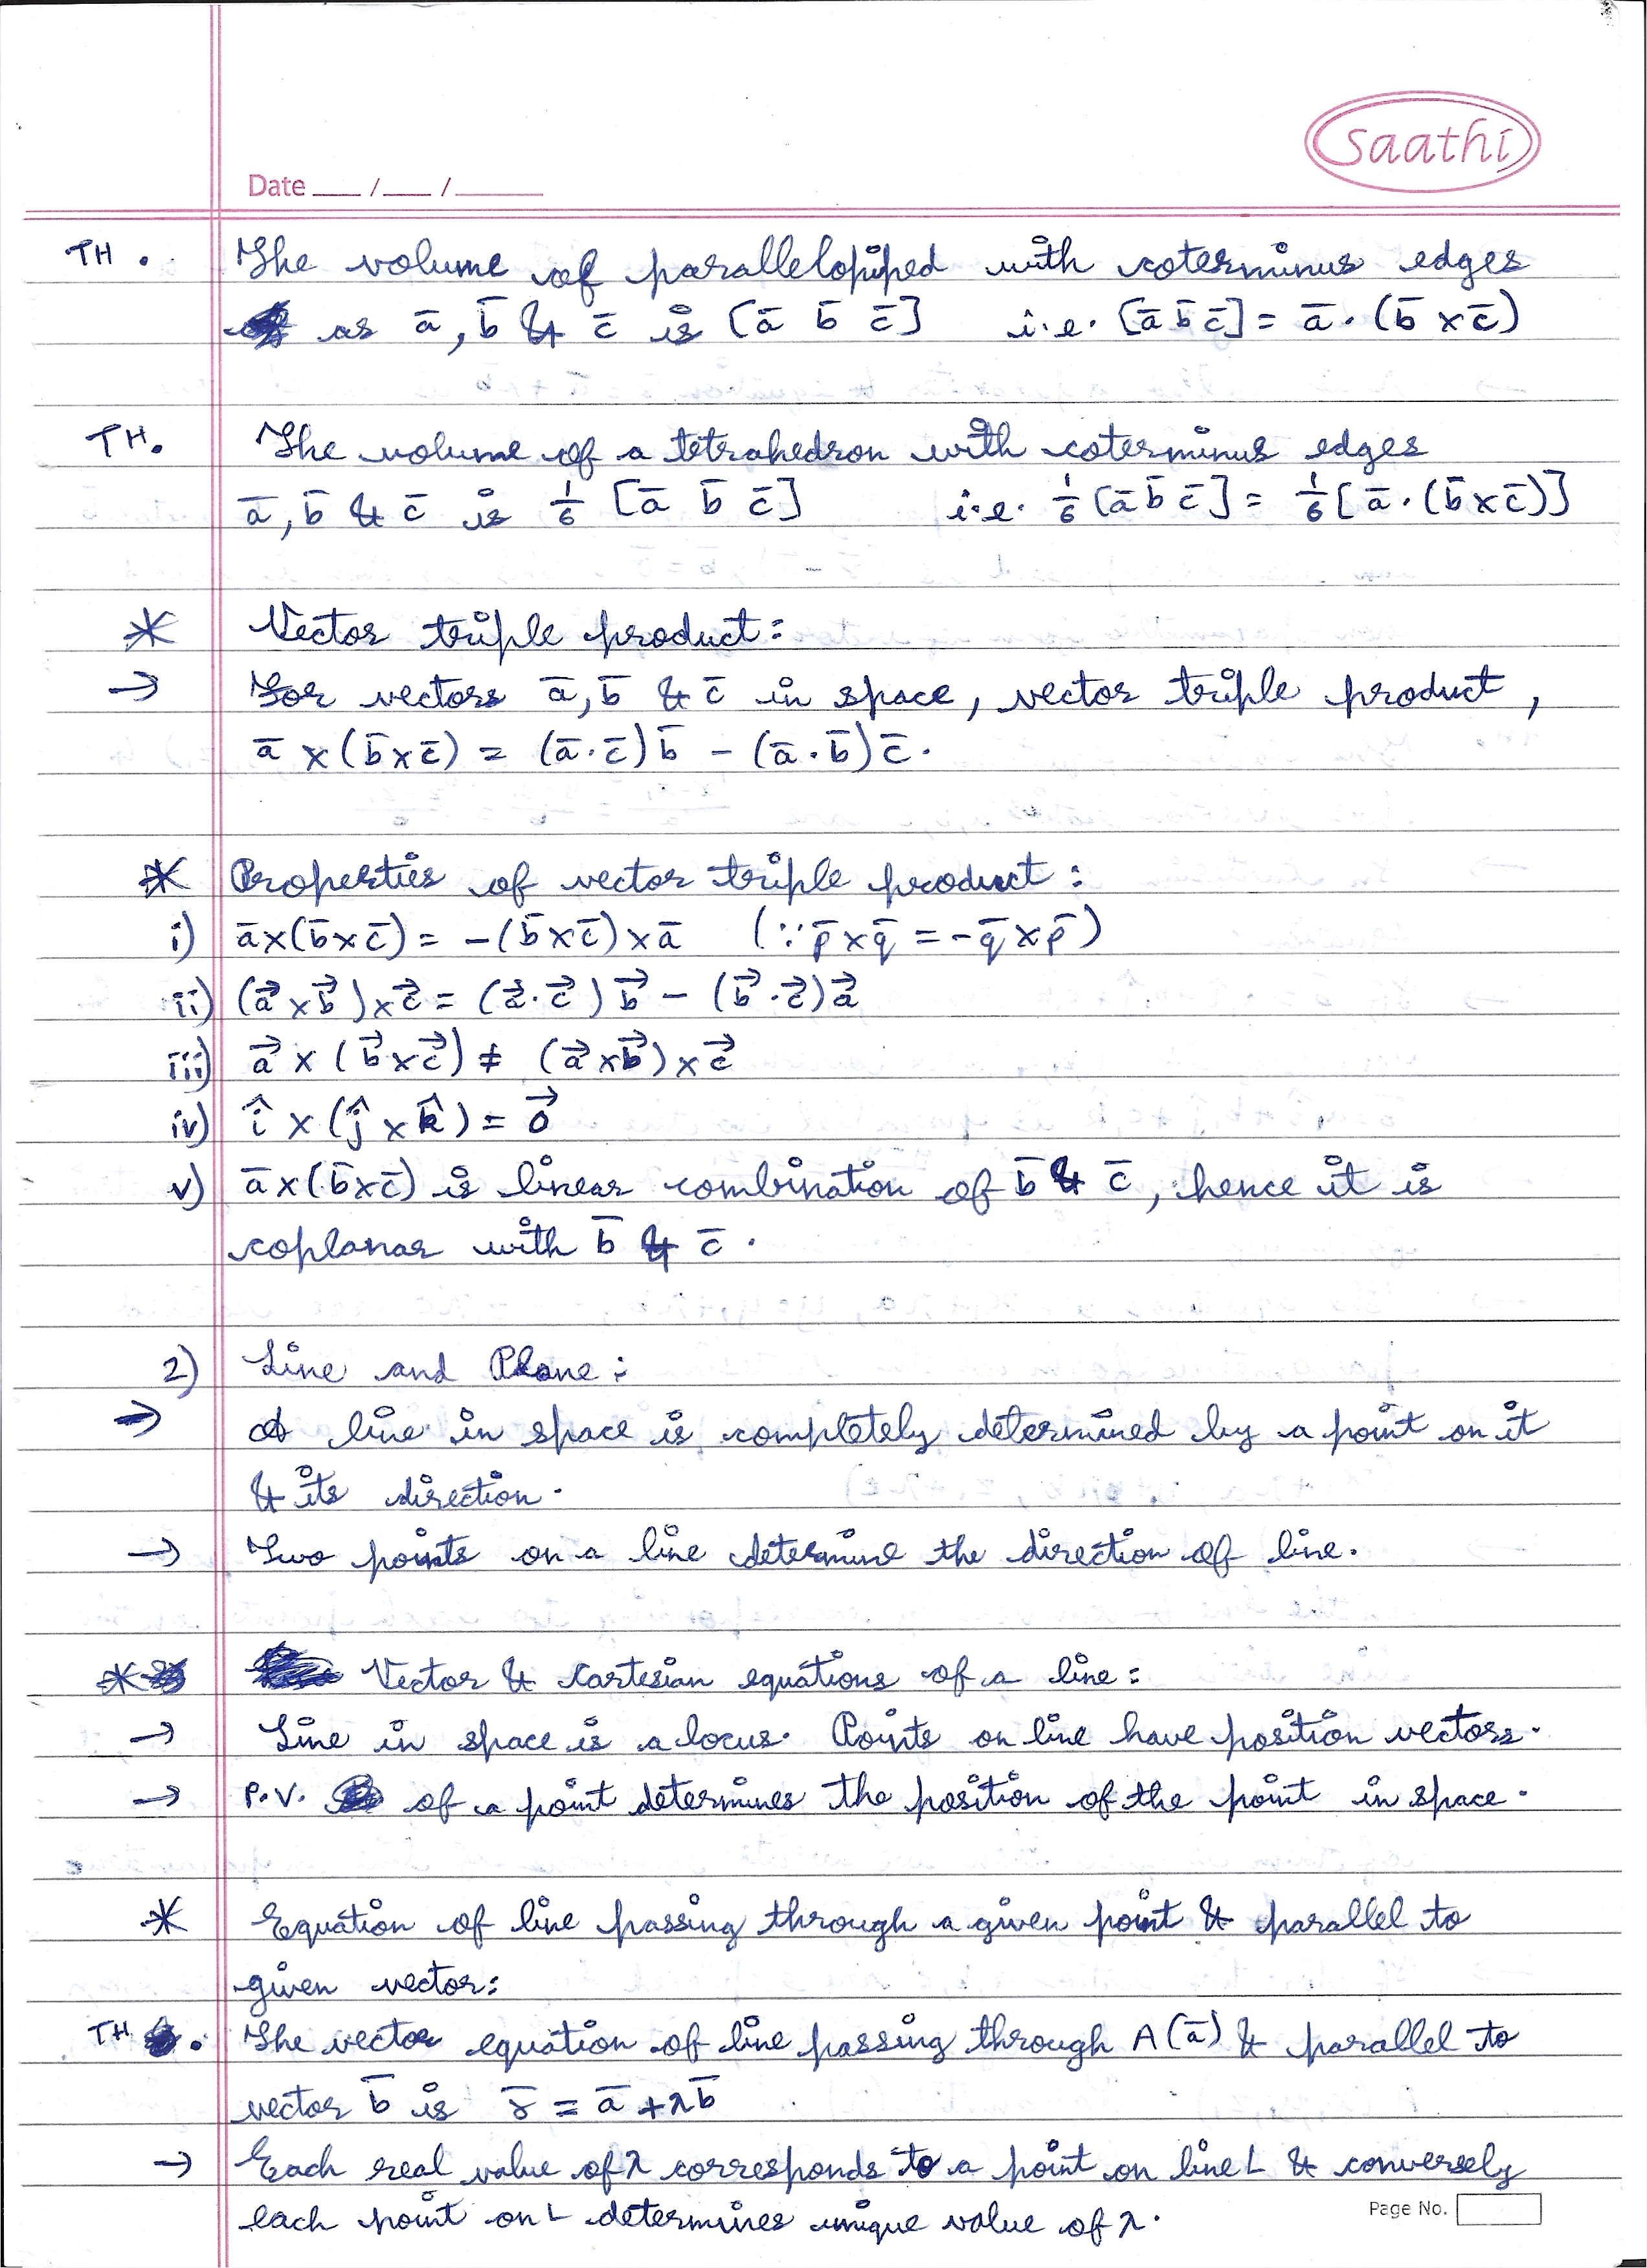 saathi
Date ___ / ___ / ______
TH . The volume of parallelopiped with coterminus edges
as a̅, b̅ & c̅ is [a̅ b̅ c̅] i.e. [a̅ b̅ c̅] = a̅ · (b̅ × c̅)
TH. The volume of a tetrahedron with coterminus edges
a̅, b̅ & c̅ is 1/6 [a̅ b̅ c̅] i.e. 1/6 [a̅ b̅ c̅] = 1/6 [a̅ · (b̅ × c̅)]
* Vector triple product :
→ For vectors a̅, b̅ & c̅ in space, vector triple product ,
a̅ × (b̅ × c̅) = (a̅ · c̅) b̅ - (a̅ · b̅) c̅ .
* Properties of vector triple product :
i) a̅ × (b̅ × c̅) = - (b̅ × c̅) × a̅ (∵ p̅ × q̅ = - q̅ × p̅)
ii) (a⃗ × b⃗) × c⃗ = (a⃗ · c⃗) b⃗ - (b⃗ · c⃗) a⃗
iii) a⃗ × (b⃗ × c⃗) ≠ (a⃗ × b⃗) × c⃗
iv) î × (ĵ × k̂) = 0⃗
v) a̅ × (b̅ × c̅) is linear combination of b̅ & c̅ , hence it is
coplanar with b̅ & c̅ .
2) Line and Plane :
→ A line in space is completely determined by a point on it
& its direction .
→ Two points on a line determine the direction of line .
* Vector & Cartesian equations of a line :
→ Line in space is a locus . Points on line have position vectors .
→ P.V. of a point determines the position of the point in space .
* Equation of line passing through a given point & parallel to
given vector :
TH . The vector equation of line passing through A (a̅) & parallel to
vector b̅ is r̅ = a̅ + λb̅
→ Each real value of λ corresponds to a point on line L & conversely
each point on L determines unique value of λ .
Page No.